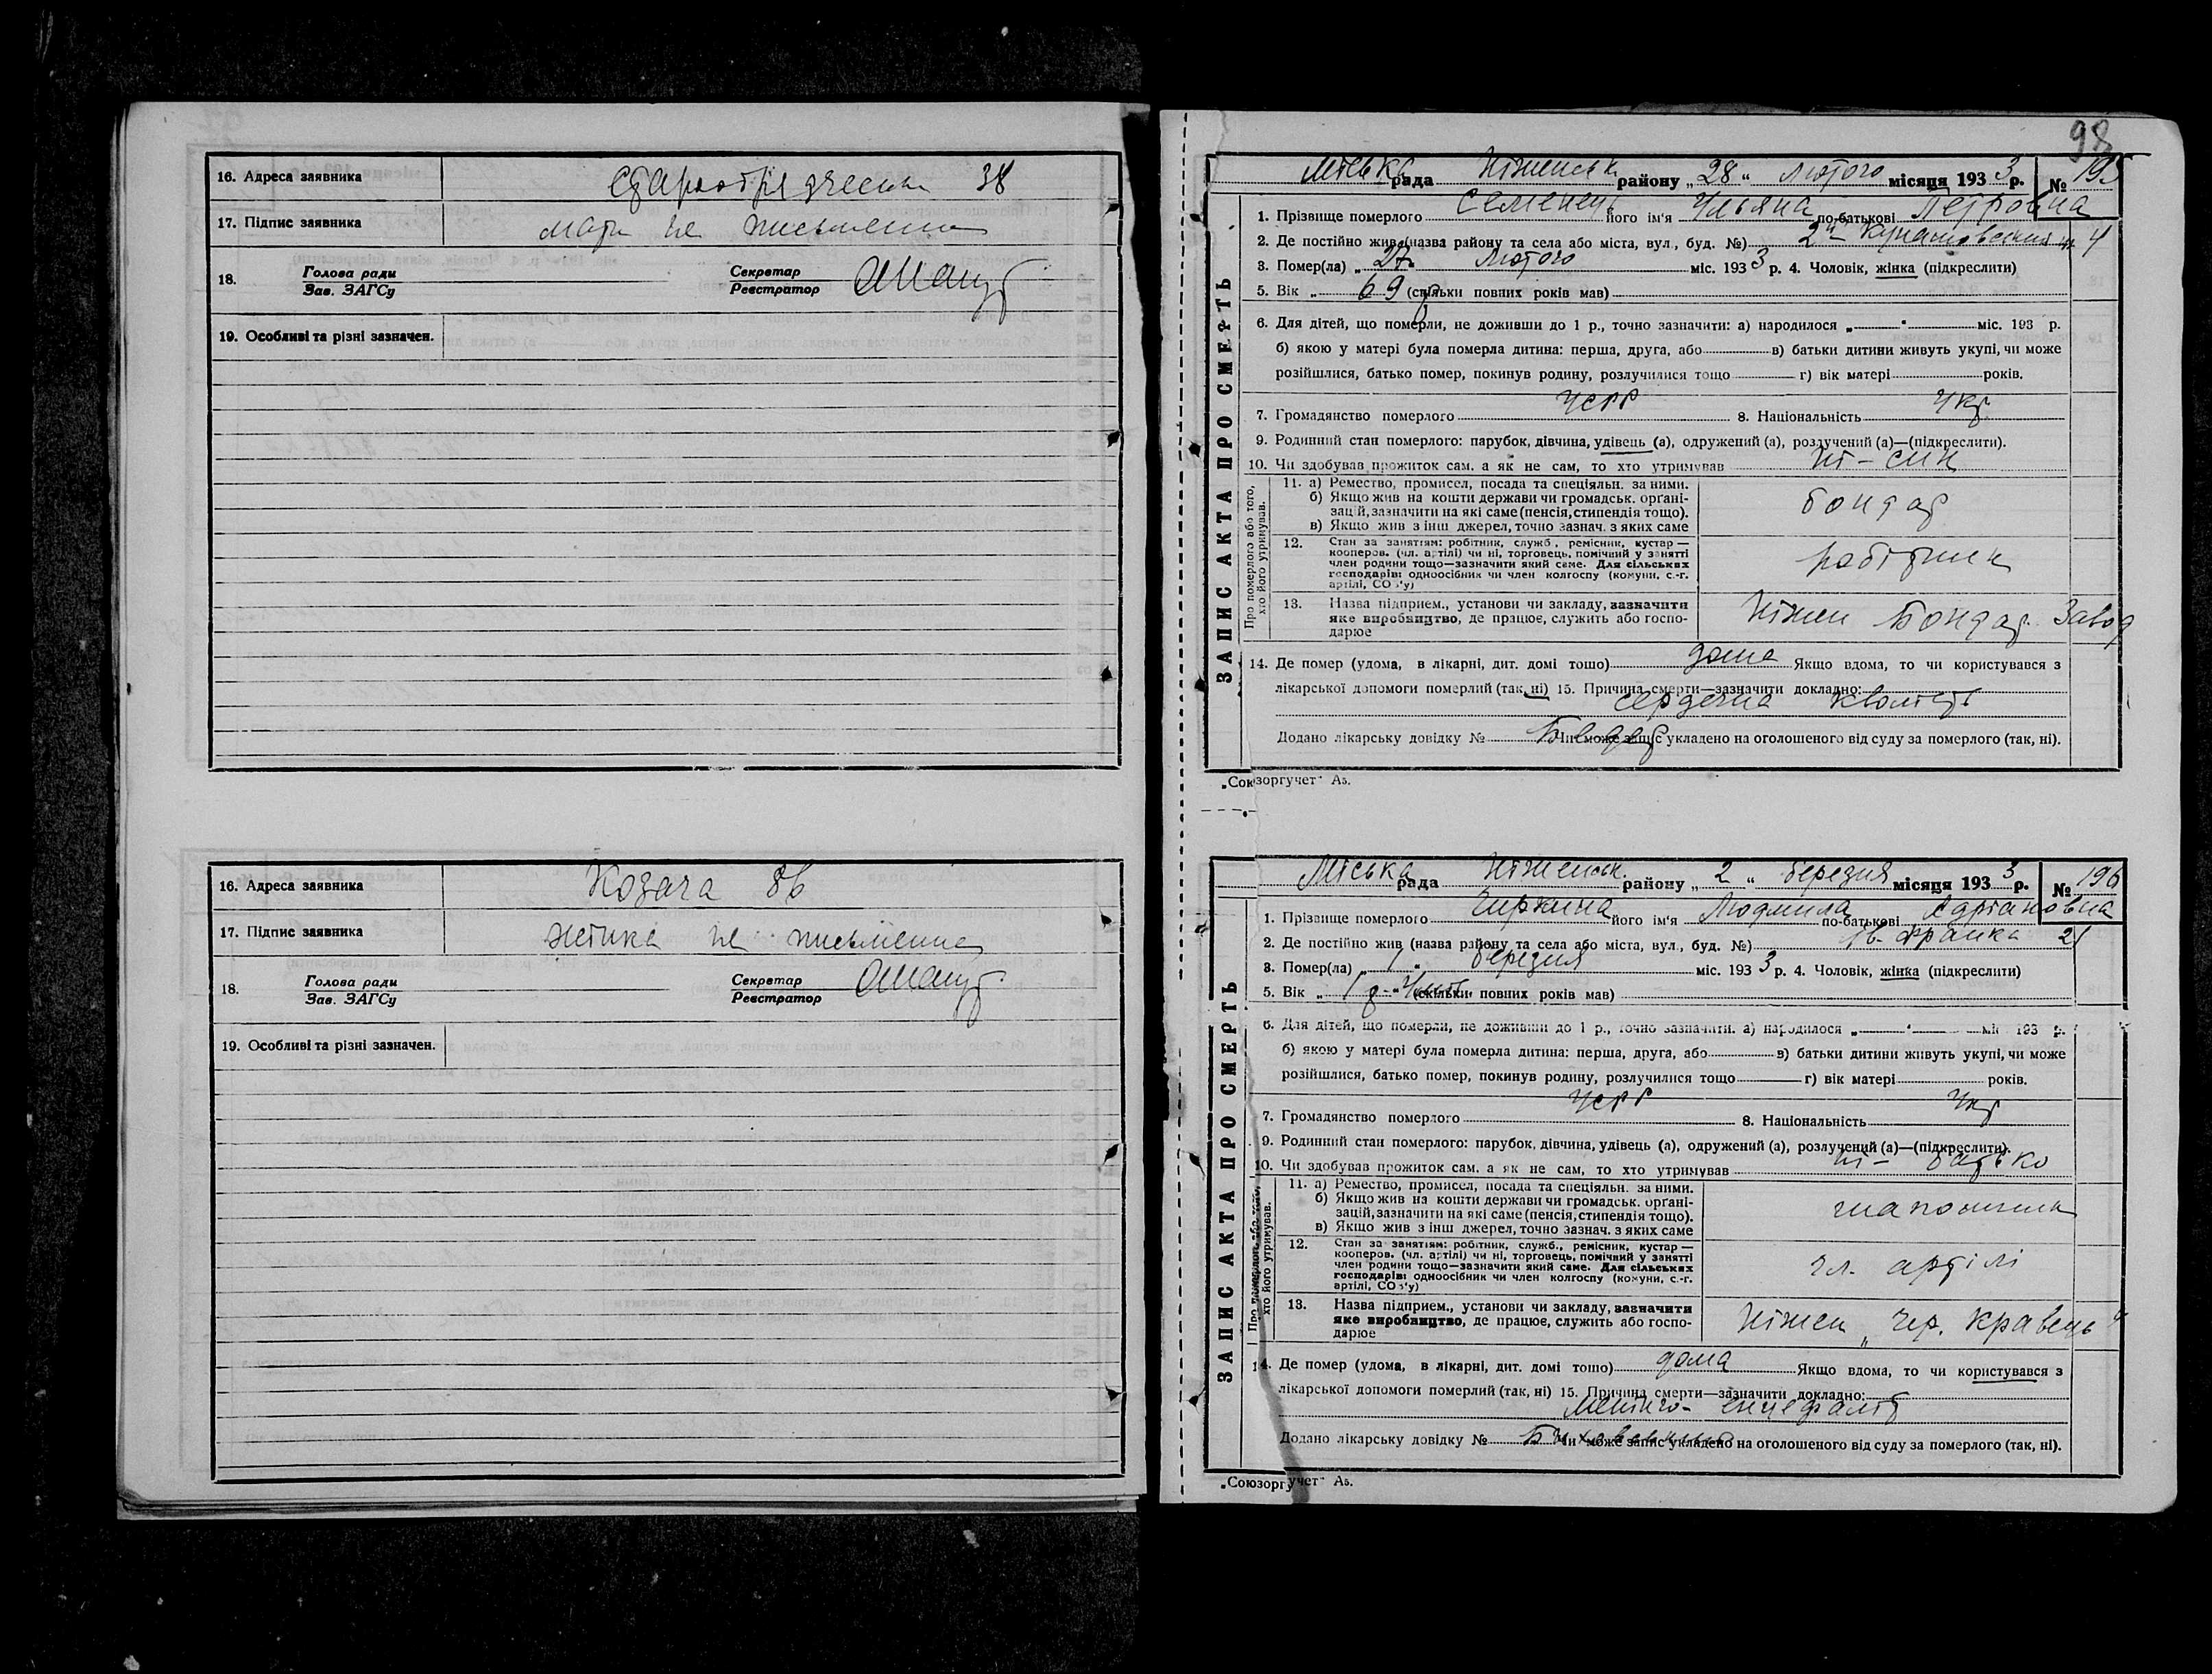 16. Адреса заявника Старообрядческая 38
17. Підпис заявника мати не письменна
18. Голова ради
Зав. ЗАГСу
Секретар
Реєстратор
19. Особливі та різні зазначен.
16. Адреса заявника Козача 86
17. Підпис заявника жінка не письменна
18. Голова ради
Зав. ЗАГСу
Секретар
Реєстратор
19. Особливі та різні зазначен.
98
ЗАПИС АКТА ПРО СМЕРТЬ
Міська рада Ніженськ району „28“ лютого місяця 1933 р. № 195
1. Прізвище померлого Семенець його ім'я Ульяна по-батькові Петровна
2. Де постійно жив (назва району та села або міста, вул., буд. №) 4
3. Помер(ла) „27“ лютого міс. 1933 р. 4. Чоловік, жінка (підкреслити)
5. Вік „ 69 (скільки повних років мав)
6. Для дітей, що померли, не доживши до 1 р., точно зазначити: а) народилося „ “ міс. 193 р.
б) якою у матері була померла дитина: перша, друга, або в) батьки дитини живуть укупі, чи може
розійшлися, батько помер, покинув родину, розлучилися тощо г) вік матері років.
7. Громадянство померлого УСРР 8. Національність Укр
9. Родинний стан померлого: парубок, дівчина, удівець (а), одружений (а), розлучений (а)—(підкреслити).
10. Чи здобував прожиток сам, а як не сам, то хто утримував ні - син
Про померлого або того, хто його утримував.
11. а) Ремество, промисел, посада та спеціяльн. за ними.
б) Якщо жив на кошти держави чи громадськ. орґані-
зацій, зазначити на які саме (пенсія, стипендія тощо).
в) Якщо жив з інш джерел, точно зазнач. з яких саме
бондар
12. Стан за занятіям: робітник, служб, ремісник, кустар —
кооперов. (чл. артілі) чи ні, торговець, помічний у занятті
член родини тощо—зазначити який саме. Для сільських
господарів: одноосібник чи член колгоспу (комуни, с.-г.
артілі, СОЗ'у)
робітник
13. Назва підприєм., установи чи закладу, зазначити
яке виробництво, де працює, служить або госпо-
дарює
Ніжен Бондар. Завод
14. Де помер (удома, в лікарні, дит. домі тощо) дома Якщо вдома, то чи користувався з
лікарської допомоги померлий (так, ні) 15. Причина смерти—зазначити докладно:
сердечна кволість
Додано лікарську довідку № Чи може запис укладено на оголошеного від суду за померлого (так, ні).
„Союзоргучет“ Аз.
ЗАПИС АКТА ПРО СМЕРТЬ
Міська рада Ніженськ. району „2“ березня місяця 1933 р. № 196
1. Прізвище померлого його ім'я Людмила по-батькові Адріановна
2. Де постійно жив (назва району та села або міста, вул., буд. №) Ів. Франка 21
3. Помер(ла) „1“ березня міс. 1933 р. 4. Чоловік, жінка (підкреслити)
5. Вік „ 1 р (скільки повних років мав)
6. Для дітей, що померли, не доживши до 1 р., точно зазначити: а) народилося „ “ міс 193 р.
б) якою у матері була померла дитина: перша, друга, або в) батьки дитини живуть укупі, чи може
розійшлися, батько помер, покинув родину, розлучилися тощо г) вік матері років.
7. Громадянство померлого УСРР 8. Національність Укр
9. Родинний стан померлого: парубок, дівчина, удівець (а), одружений (а), розлучений (а)—(підкреслити).
10. Чи здобував прожиток сам, а як не сам, то хто утримував ні - батько
Про померлого або того, хто його утримував.
11. а) Ремество, промисел, посада та спеціяльн. за ними.
б) Якщо жив на кошти держави чи громадськ. орґані-
зацій, зазначити на які саме (пенсія, стипендія тощо).
в) Якщо жив з інш джерел, точно зазнач. з яких саме
шапошник
12. Стан за занятіям: робітник, служб., ремісник, кустар —
кооперов. (чл. артілі) чи ні, торговець, помічний у занятті
член родини тощо—зазначити який саме. Для сільських
господарів: одноосібник чи член колгоспу (комуни, с.-г.
артілі, СОЗ'у)
чл. артілі
13. Назва підприєм., установи чи закладу, зазначити
яке виробництво, де працює, служить або госпо-
дарює
Ніжен „Чер. Кравець“
14. Де помер (удома, в лікарні, дит. домі тощо) дома Якщо вдома, то чи користувався з
лікарської допомоги померлий (так, ні) 15. Причина смерти—зазначити докладно:
Менінго-енцефаліт
Додано лікарську довідку № Чи може запис укладено на оголошеного від суду за померлого (так, ні).
„Союзоргучет“ Аз.